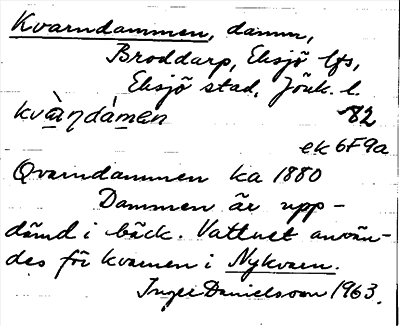 Kvarndammen, damm,
Broddarp, Eksjö lfs,
Eksjö stad, Jönk. l.
kvà̱ŋdàmen 82
ek 6F9a
Qvarndammen ka 1880
Dammen är upp-
dämd i bäck. Vattnet använ-
des för kvarnen i Nykvarn.
Inger Danielsson 1963.